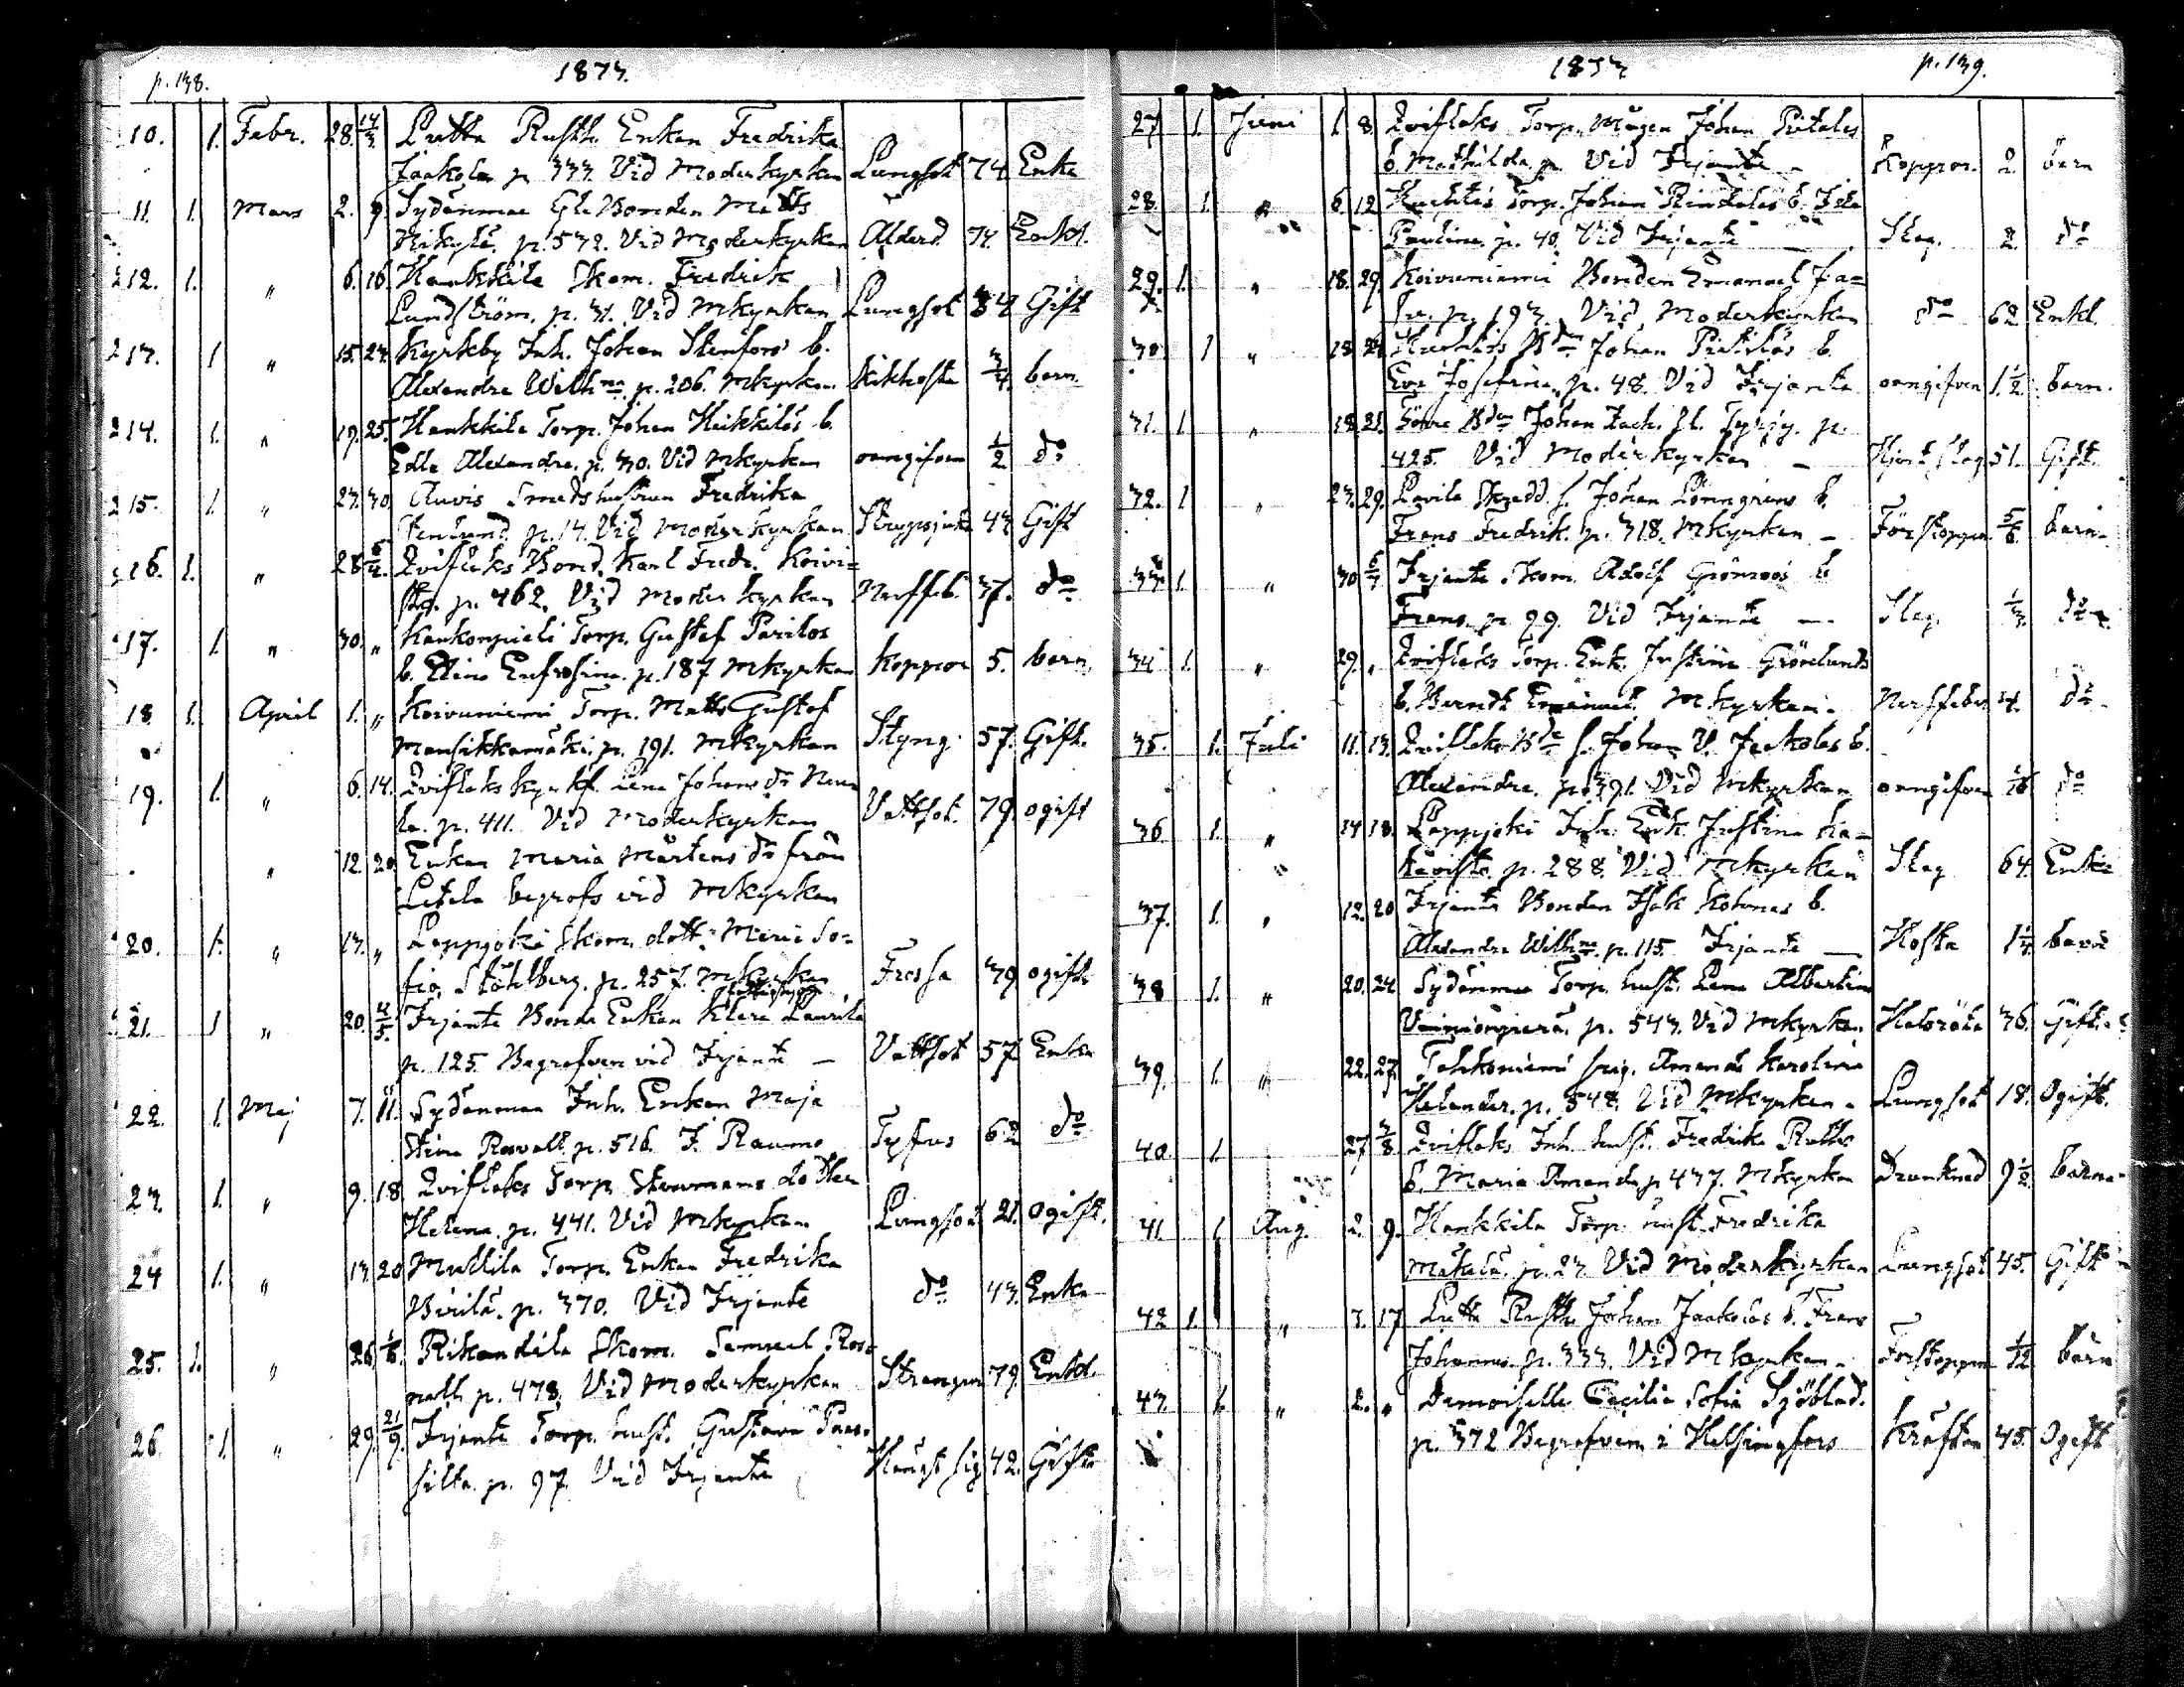 p. 138. 1873.
10. 1. Febr. 28. 14/3 Lutta Rusth. Enkan Fredrika
Jaakola p 333. Vid Moderkyrkan Lungsot 74 Enka
11. 1. Mars 2. 9 Sydänmaa Gl. Bonden Matts
p. 532. Vid Moderkyrkan Ålderd. 74. Enkl.
12. 1. " 6. 16. Hankkila Skom. Fredrik
Lundström. p. 31. Vid Mkyrkan Lungsot 34 Gift
13. 1 " 15. 23. Kyrkby Inh. Johan Stenfors b.
Alexandra Wilh:na p. 206. Mkyrkan Kikhosta 3/4. barn
14. 1. " 19. 25. Hankkila Torp. Johan Heikkiläs b.
Edla Alexandra. p. 30. Vid Mkyrkan oangifven 1/2 do
15. 1. " 23. 30. Auvis Smeds hustrun Fredrika
Stenlund. p. 14. Vid Moderkyrkan 43 Gift
16. 1. " 28 6/4. Qvistlaks Bond. Karl Fredr. Koivi-
sto. p. 462. Vid Moderkyrkan Nerffeb. 37. do
17. 1. " 30. " Kaukonpieli Torp. Gustaf Parilas
b. Elina Eufrosina. p. 187 Mkyrkan Koppor 5. barn
18 1. April 1. " Koivuniemi Torp. Matts Gustaf
Mansikkamäki. p. 191. Mkyrkan Styng. 57. Gift.
19. 1. " 6. 14. Lena Johans dr
la. p. 411. Vid Moderkyrkan Vattsot. 79. ogift
" 12. 20. Enkan Maria Mårtens dr från
Letala begrofs vid Mkyrkan
20. 1. " 13. " Lappijoki Skom. dott. Maria So-
fia Ståhlberg. p. 257. Mkyrkan Frossa 39 ogift
21. 1 " 20. 4/5. Irjante Bonde Enkan Klara Laurila
p. 125. Begrafven vid Irjante — Vattsot 57 Enka
22. 1. Maj 7. 11. Sydänmaa Inh. Enkan Maja
Stina Rosvall p. 516. I. Raumo Tyfus 62 do
23. 1. " 9. 18 Qvistlaks Torp. dotter
Helena. p. 441. Vid Mkyrkan Lungsot 21. ogift.
24 1. " 13 20 Mullila Torp. Enkan Fredrika
p. 370. Vid Irjante do 43. Enka
25. 1. " 26. 1/6. Rikandila Skom. Samuel Ros-
nall p. 478. Vid Moderkyrkan 79. Enkl.
26. 1. " 29. 21/9. Irjante Torp. hust. Gustava
silta. p. 97. Vid Irjante Hängt sig 42. Gift
1873 p. 139.
27 1. Juni 1. 8. Qvistlaks Torp. Mågen Johan
b Mathilda p. Vid Irjante — Koppor. 2 barn
28. 1. " 6. 12 Torp. Johan b. Ida
Paulina p. 40. Vid Irjante — Slag. 2 do
29. 1. " 18. 29. Koivuniemi Bonden Emanuel Ja-
p. 193. Vid Moderkyrkan do 62 Enkl.
30 1 " 18 Johan b.
Eva Josefina. p. 48. Vid Irjante oangifven 1 1/2 barn.
31. 1. " 18. 21. Johan Zach. p.
425. Vid Moderkyrkan — Hjertslag 51. Gift.
32. 1 " 23. 29. Lavila Skradd. s. Johan Lönngrens b.
Frans Fredrik. p. 318. Mkyrkan — Förstoppn 5/6. barn
33. 1. " 30 6/7 Irjante Skom. Adolf Grönroos b
Frans. p. 99. Vid Irjante — Slag. 1/3 do
34. 1. " 29. " Qvistlaks Torp. Enk. Justina Grönlunds
b. Berndt Emanuel. Mkyrkan. Nerffeber 4. do
35. 1. Juli 11. 13. Qvistlaks s. Johan V. Jaakolas b.
Alexandra. p. 391. Vid Mkyrkan oangifven do
36 1. " 14 18. Lappijoki Inh. Enk. Justina Ka-
p. 288. Vid Mkyrkan Slag 64. Enka
37. 1. " 12. 20 Irjante Bonden Isak b.
Alexandra Wilh:na p. 115. Irjante — Hosta 1 1/4 barn
38 1. " 20. 24 Sydänmaa Torp. hust. Lena Albertina
p. 543. Vid Mkyrkan Halsröta 36. Gift.
39. 1. " 22. 27. Tahkoniemi pig. Amanda Karolina
Helander. p. 548. Vid Mkyrkan. Lungsot 18. Ogift.
40 1. 27 3/8 Qvistlaks Inh. hust. Fredrika
b. Maria Amanda p 437. Mkyrkan Drunknad 9 1/2 barn
41 1. Aug. 2. 9. Hankkila Torp. hust. Fredrika
Mäkelä. p. 23. Vid Moderkyrkan Lungsot 45. Gift
42 1. " 3. 17 Lutta Rusth. Johan Jaakolas b. Frans
Johannes. p. 333. Vid Mkyrkan. Förstoppn 1/12 barn
43. 1. " 2. " Demoiselle Cecilia Sofia Sjöblad.
p. 372 Begrafven i Helsingfors Kräftan 45. Ogift